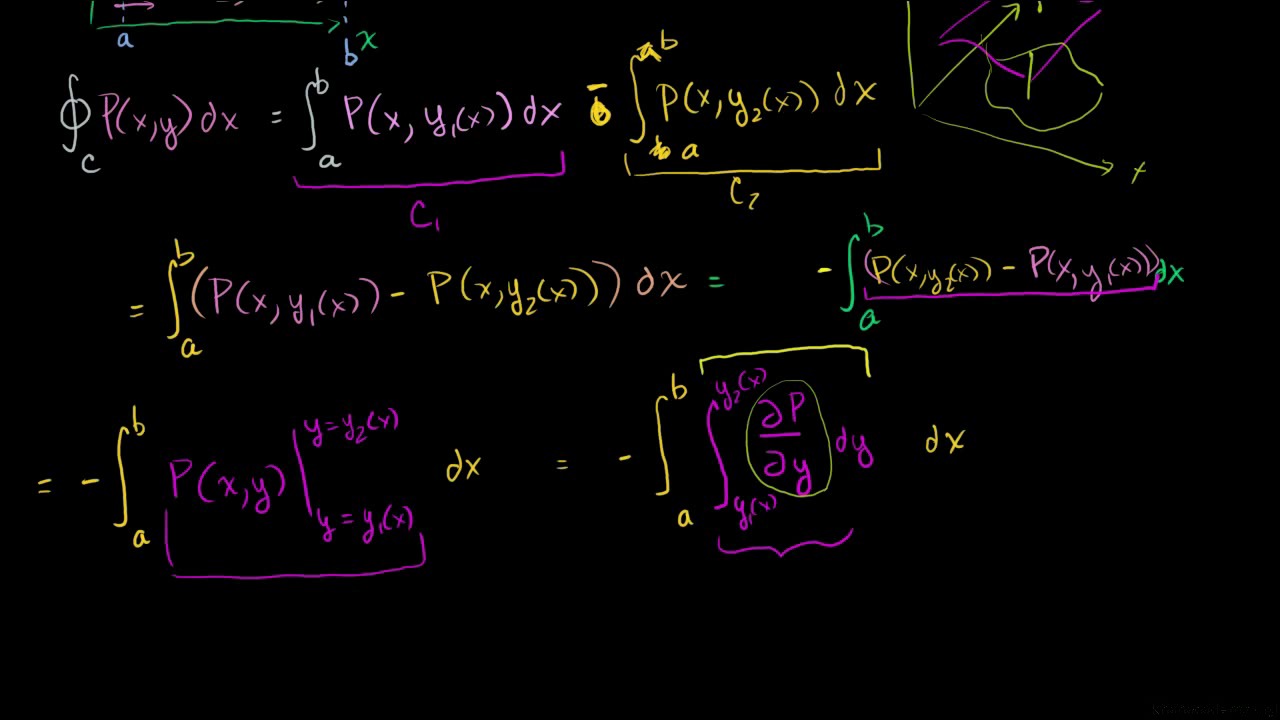 a b x
∮_C P(x,y) dx = ∫_a^b P(x, y₁(x)) dx − ∫_a^b P(x, y₂(x)) dx
C₁ C₂
x
= ∫_a^b (P(x, y₁(x)) − P(x, y₂(x))) dx = − ∫_a^b (P(x, y₂(x)) − P(x, y₁(x))) dx
= − ∫_a^b P(x,y) |_{y = y₁(x)}^{y = y₂(x)} dx = − ∫_a^b ∫_{y₁(x)}^{y₂(x)} ∂P/∂y dy dx